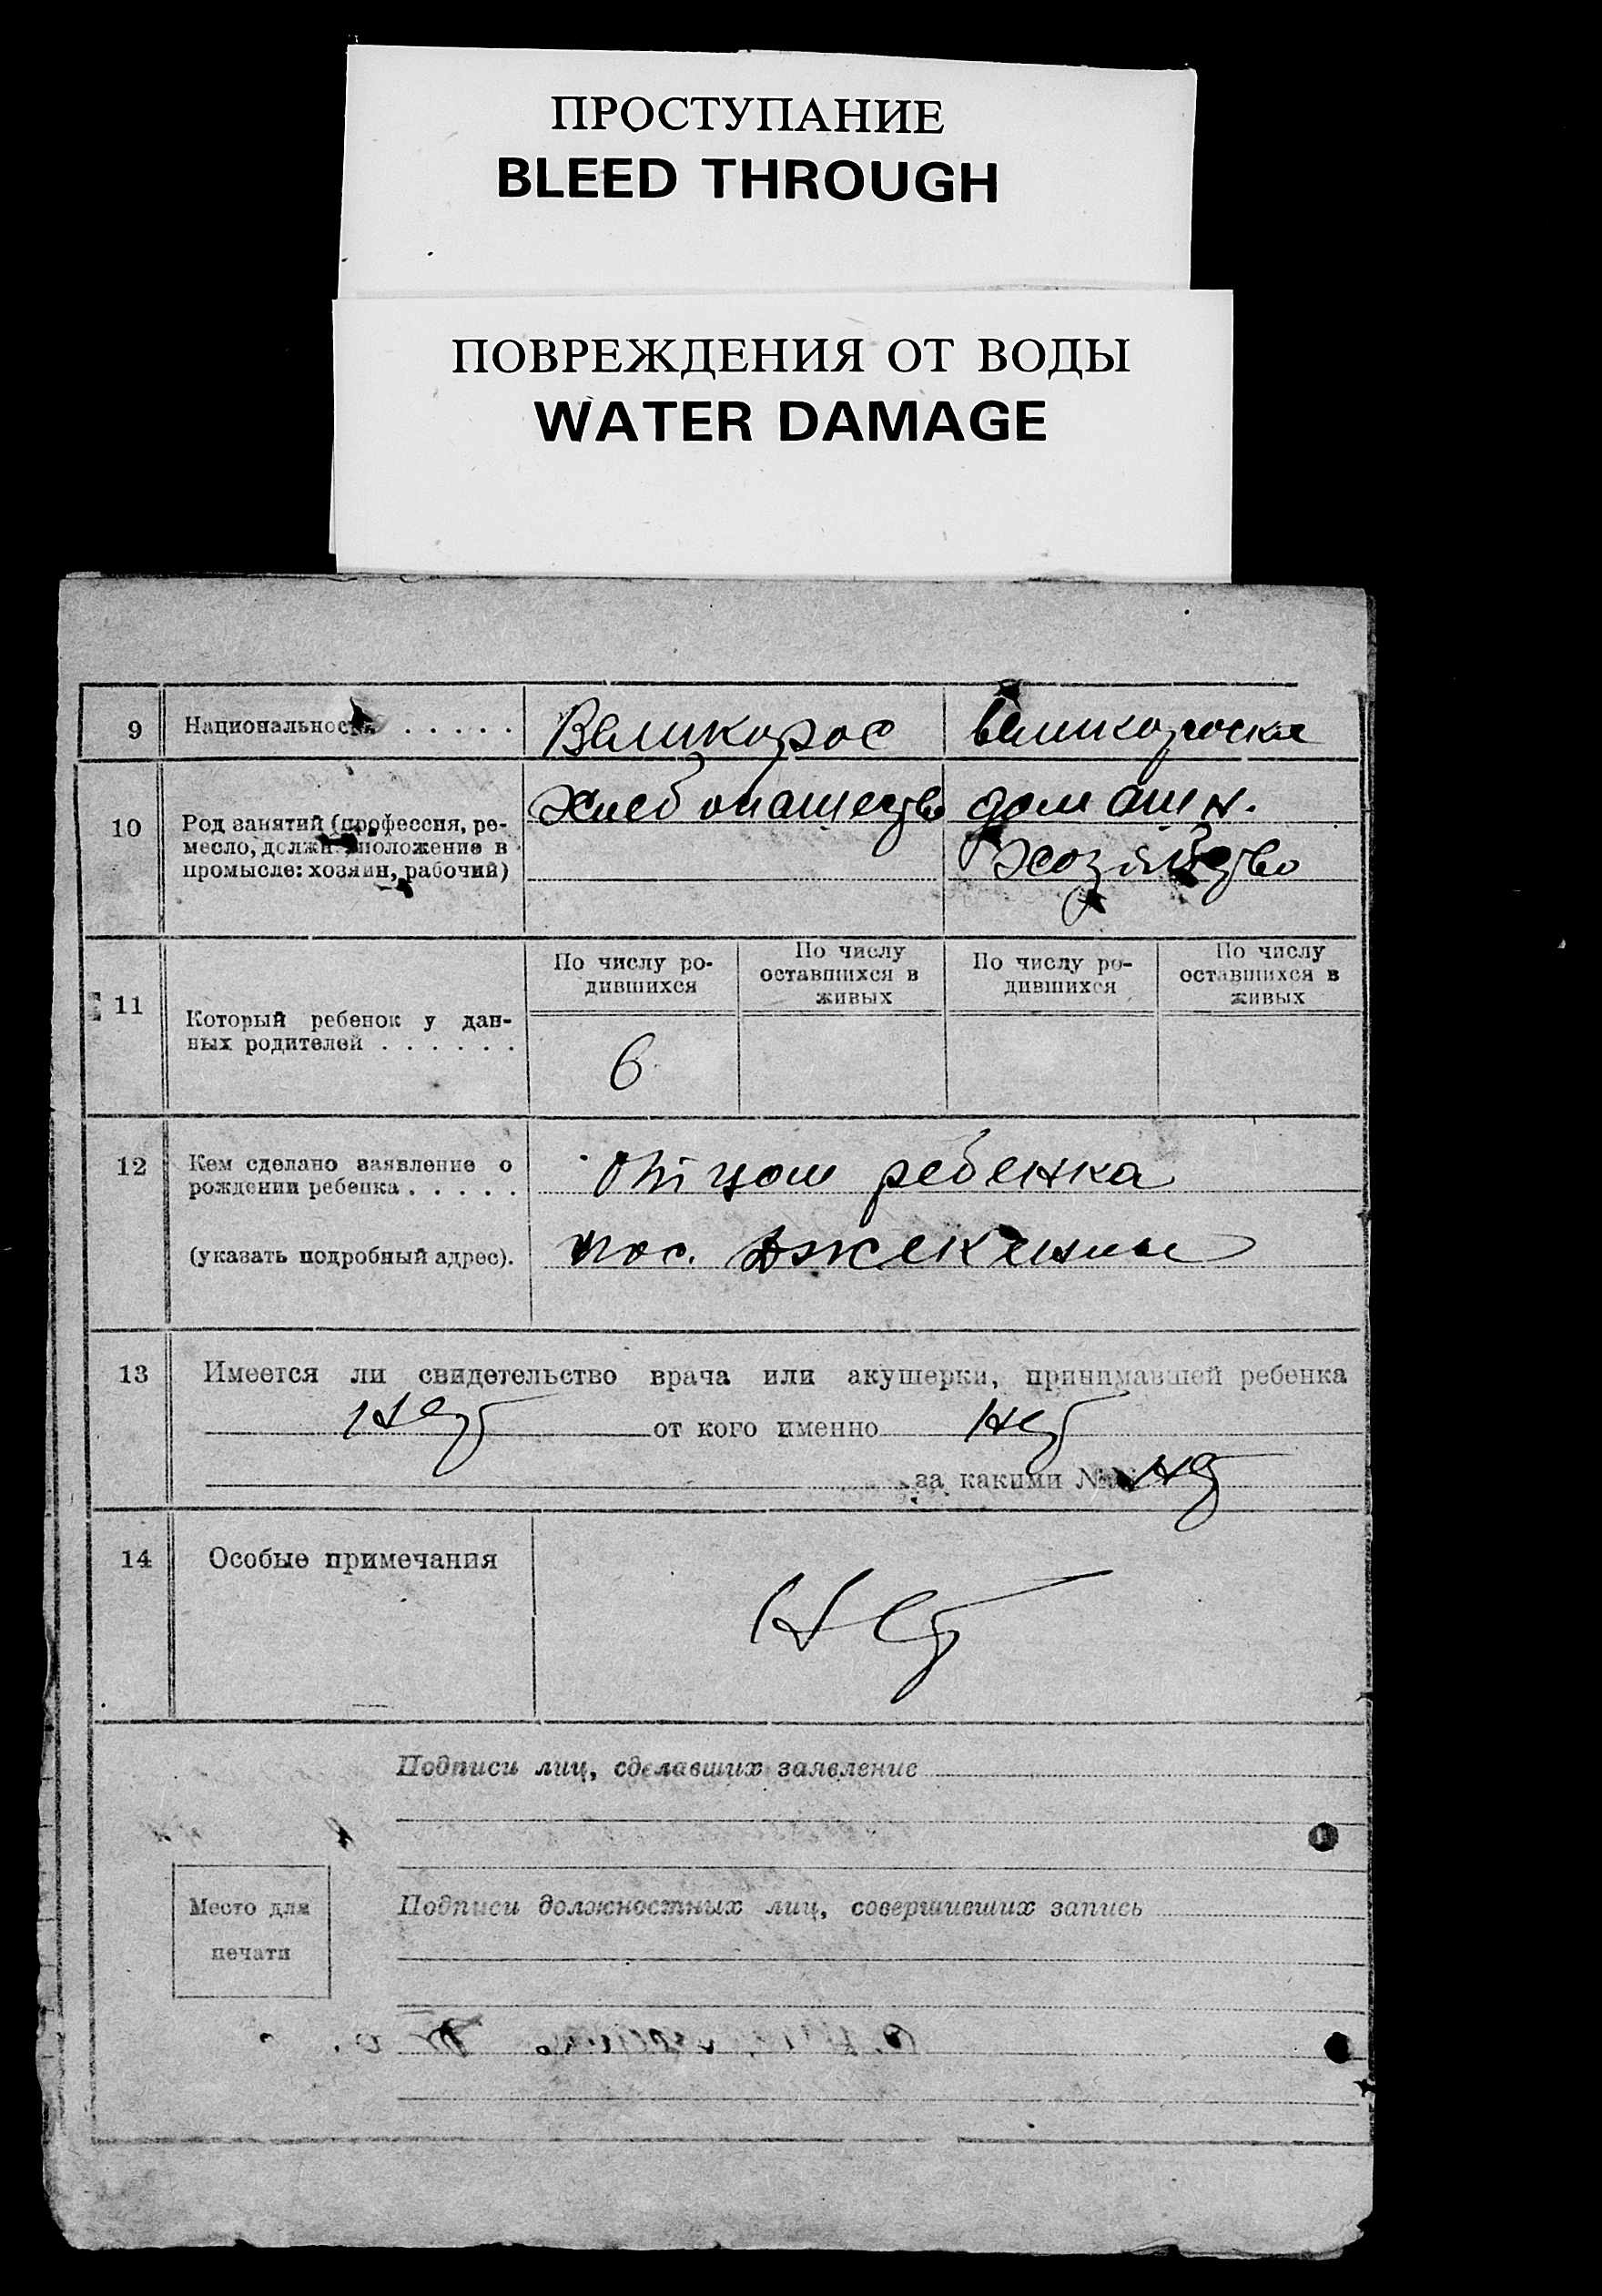 ПРОСТУПАНИЕ
BLEED THROUGH
ПОВРЕЖДЕНИЯ ОТ ВОДЫ
WATER DAMAGE
9 Национальность . . . . . Великорос великороска
10 Род занятий (профессия, ре-
месло, должн. положение в
промысле: хозяин, рабочий)
Хлебопашество домашн.
хозяйство
11 Который ребенок у дан-
ных родителей . . . . . .
По числу ро-
дившихся
По числу
оставшихся в
живых
По числу ро-
дившихся
По числу
оставшихся в
живых
6
12 Кем сделано заявление о
рождении ребенка . . . . . Отцом ребенка
(указать подробный адрес). пос.
13 Имеется ли свидетельство врача или акушерки, принимавшей ребенка
Нет от кого именно Нет
за какими № Нет
14 Особые примечания Нет
Подписи лиц, сделавших заявление
Место для
печати
Подписи должностных лиц, совершивших запись